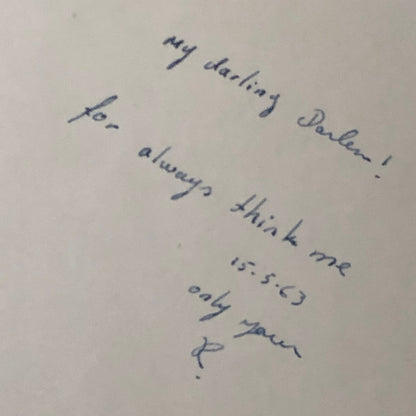 My darling Darlen!
for always think me
15.5.63
only your
R.